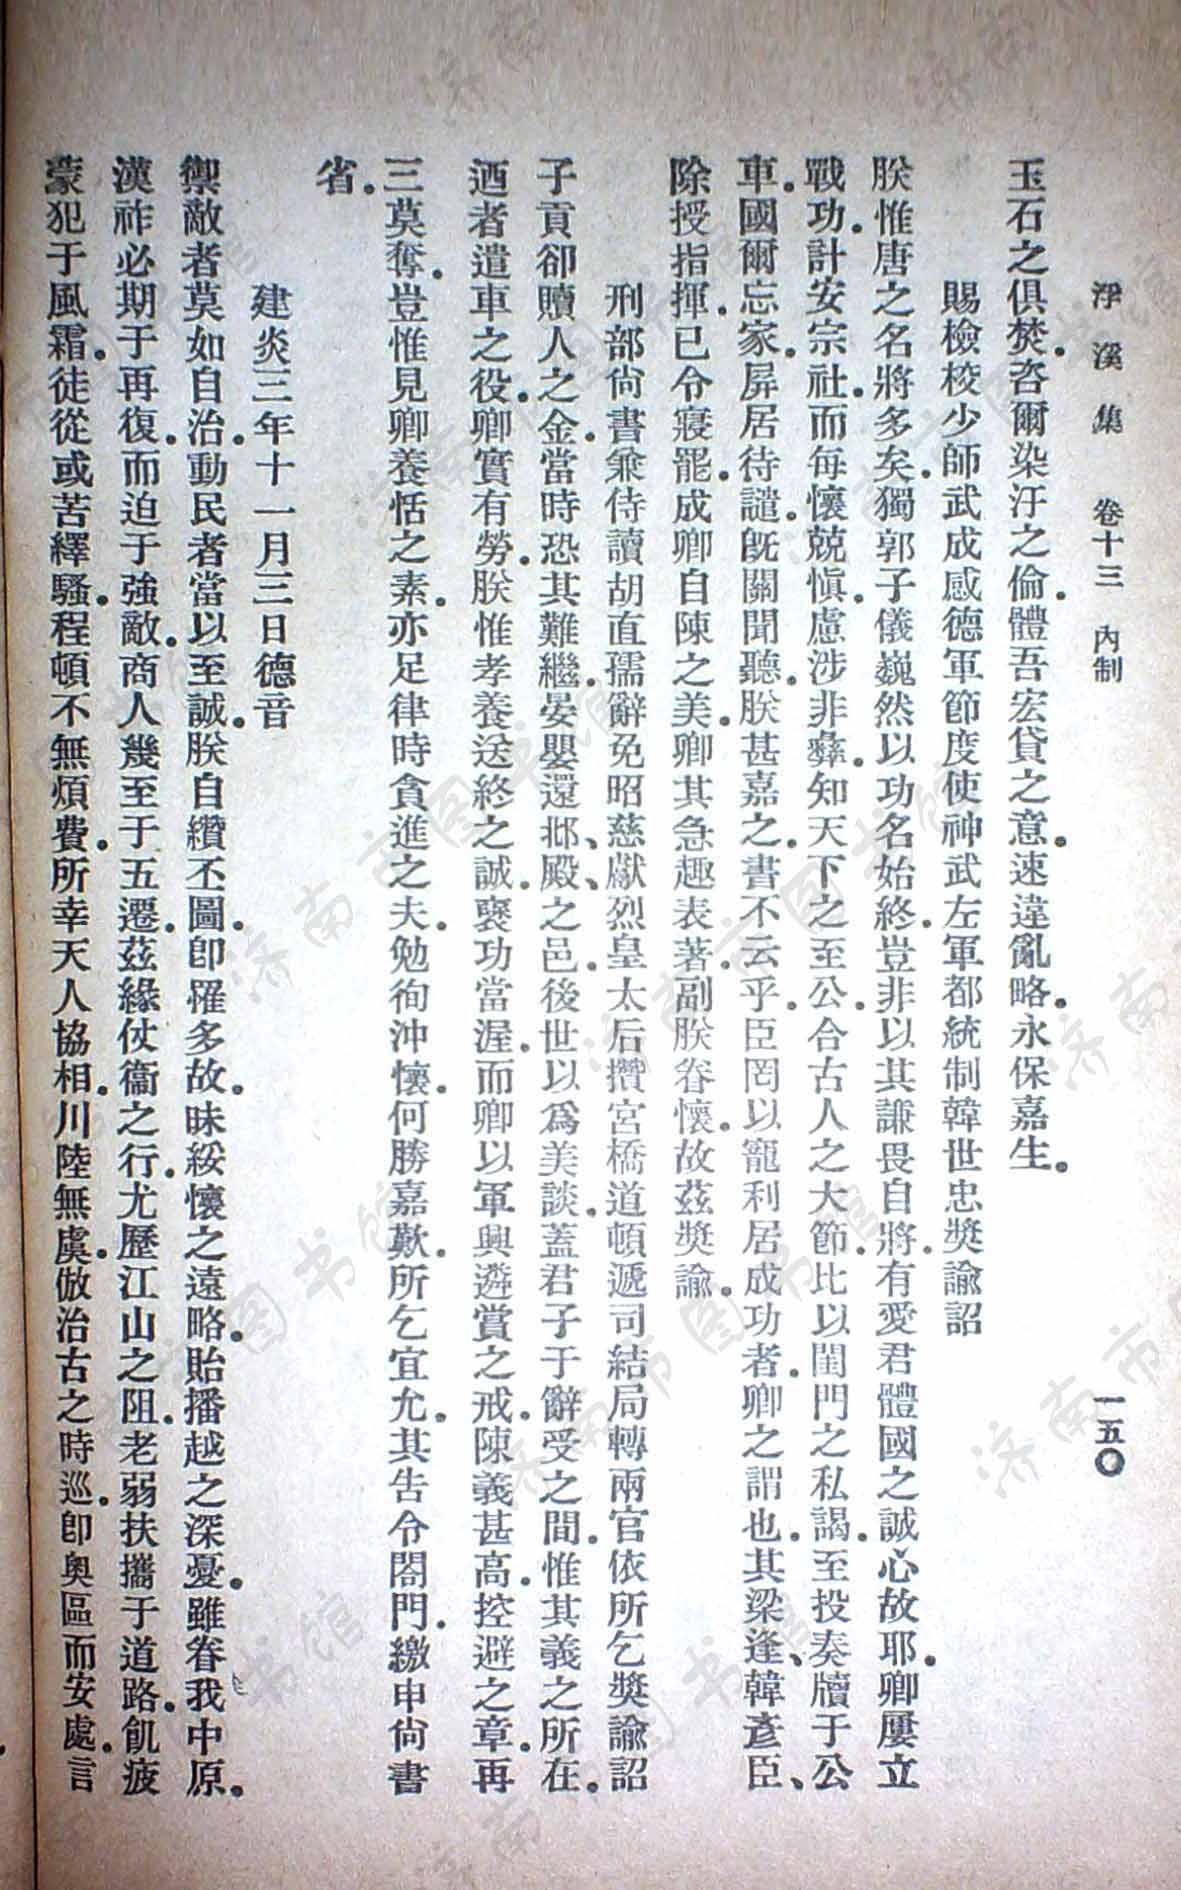 浮溪集　卷十三　內制　一五〇
玉石之俱焚。咨爾染汙之倫。體吾宏貸之意。速違亂略。永保嘉生。
賜檢校少師武成感德軍節度使神武左軍都統制韓世忠獎諭詔
朕惟唐之名將多矣。獨郭子儀巍然以功名始終。豈非以其謙畏自將。有愛君體國之誠心故耶。卿屢立
戰功。計安宗社。而每懷兢愼。慮涉非彝。知天下之至公。合古人之大節。比以閨門之私謁。至投奏牘于公
車。國爾忘家。屏居待譴。旣關聞聽。朕甚嘉之。書不云乎。臣罔以寵利居成功者。卿之謂也。其梁逢、韓彥臣、
除授指揮。已令寢罷。成卿自陳之美。卿其急趣表著。副朕眷懷。故茲獎諭。
刑部尙書兼侍讀胡直孺辭免昭慈、獻、烈皇太后攢宮橋道頓遞司結局轉兩官依所乞獎諭詔
子貢卻贖人之金。當時恐其難繼。晏嬰還邶殿之邑。後世以爲美談。蓋君子于辭受之間。惟其義之所在。
迺者遣車之役。卿實有勞。朕惟孝養送終之誠。襃功當渥。而卿以軍興遴賞之戒。陳義甚高。控避之章。再
三莫奪。豈惟見卿養恬之素。亦足律時貪進之夫。勉徇沖懷。何勝嘉歎。所乞宜允。其告令閤門。繳申尙書
省。
建炎三年十一月三日德音
禦敵者莫如自治。動民者當以至誠。朕自纘丕圖。卽罹多故。昧綏懷之遠略。貽播越之深憂。雖眷我中原。
漢祚必期于再復。而迫于強敵。商人幾至于五遷。茲緣仗衞之行。尤歷江山之阻。老弱扶攜于道路。飢疲
蒙犯于風霜。徒從或苦繹騷。程頓不無煩費。所幸天人協相。川陸無虞。倣治古之時巡。卽奧區而安處。言